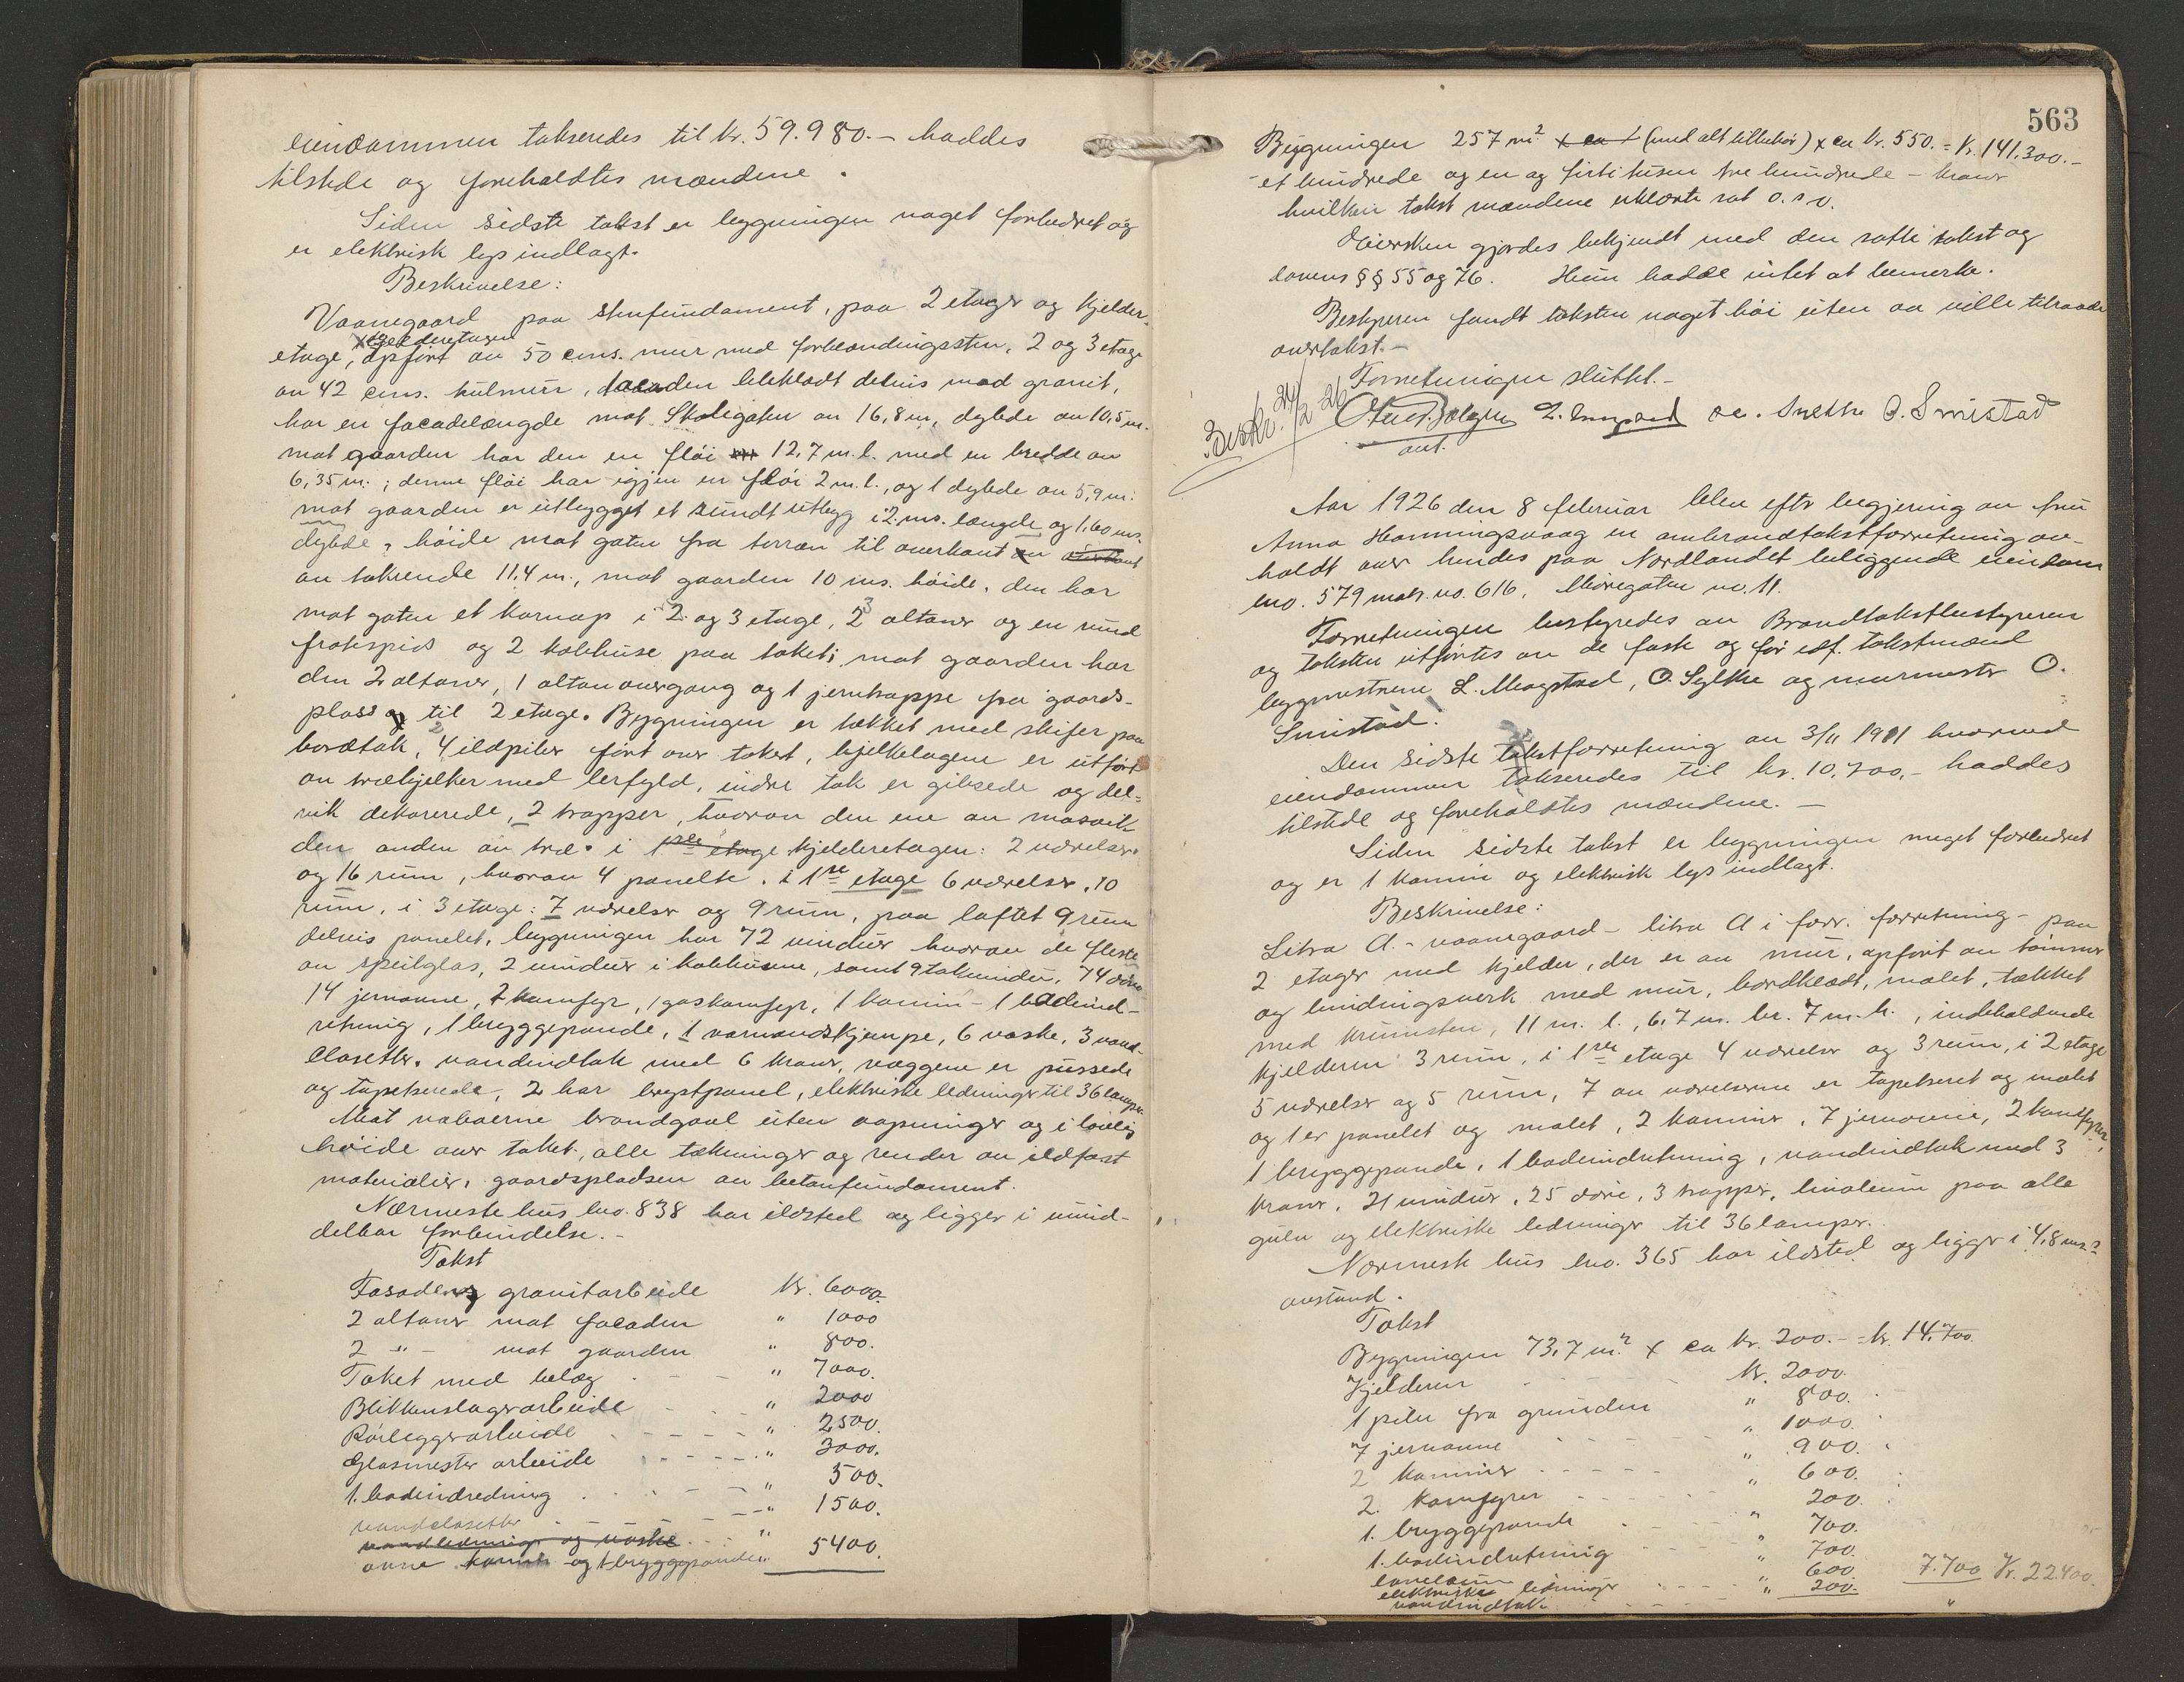 eiendommen takseredes til kr. 59.980.- haddes
tilstede og foreholdtes mændene.
Siden sidste takst er bygningen noget forbedret og
er elektrisk lys indlagt.
Beskrivelse:
Vaanegaard paa stenfundament, paa 2 etager og kjelder-
kjelderetagen
etage, opført av 50 cms. mur med forblændingssten, 2 og 3 etage
av 42 cms. hulmur, facaden beklædt delvis med granit,
har en facadelængde mot Skolegaten av 16,8 m, dybde av 10,5 m.
mot gaarden har den en fløi 12,7 m. l. med en bredde av
6,35 m.; denne fløi har igjen en fløi 2 m. l., og 1 dybde av 5,9 m.
mot gaarden er utbygget et rundt utbygg i 2. ms. længde og 1,60 ms.
dybde, høide mot gaten fra terræn til overkant
av takrende 11,4 m., mot gaarden 10 ms. høide. den har
mot gaten et karnap i 2. og 3 etage, 2 3 altaner og en rund
frotispis og 2 kobhuse paa taket; mot gaarden har
den 2 altaner, 1 altanovergang og 1 jerntrappe fra gaards-
plass til 2 etage. Bygningen er tækket med skifer paa
bordtak, 4 ildpiber ført over taket, bjelkelagene er utført
av træbjelker med lerfyld, indre tak er gibsede og del-
vik dekorerede, 2 trapper, hvorav den ene av mosaik
den anden av træ. i 1ste etage kjelderetagen: 2 værelser
og 16 rum, hvorav 4 panelte. i 1ste etage 6 værelser, 10
rum, i 3 etage: 7 værelser og 9 rum, paa loftet 9 rum
delvis panelet, bygningen har 72 vinduer hvorav de fleste
av speilglas, 2 vinduer i kobhusene, samt 9 takvinduer, 74 døre
14 jernovne, 2 komfyr, 1 gaskomfyr, 1 kamin - 1 badeind-
retning, 1 bryggepande, 1 varmvandskjempe, 6 vaske, 3 vand-
closetter. vandindtak med 6 kraner, væggene er pussede
og tapetserede, 2 har brystpanel, elektriske ledninger til 36 lamper.
Mot naboerne brandgavl uten aapninger og i lovlig
høide over taket, alle tækninger og render av ildfast
materialier. gaardspladsen av betonfundament.
Nærmeste hus bno. 838 har ildsted og ligger i umid-
delbar forbindelse.-
Takst
Fasadens granitarbeide kr. 6000.
2 altaner mot facaden " 1000
2 - " - mot gaarden " 800.
Taket med belæg " 7000.
Blikkenslagerarbeide " 2000
Rørleggerarbeide " 2500.
Glasmester arbeide " 3000.
1. badeindredning " 500.
vandclosetter " 1500.
vandledninger og vaske
ovne kamin og 1 bryggepande " 5400.
563
Bygningen 257 m² x ca 1 (med alt tilbehør) x ca kr. 550. = kr. 141.300.-
- et hundrede og en og firti tusen tre hundrede - kroner
hvilken takst mændene erklærte sat o.s.v.
Eiersken gjordes bekjendt med den satte takst og
lovens §§ 55 og 76. Hun hadde intet at bemerke.
Bestyreren fandt taksten noget høi uten aa ville tilraade
overtakst.-
Forretningen sluttet.-
Beskr. 24/2 26
O. Smistad
aut.
Aar 1926 den 8 februar blev efter begjering av fru
Anna Honningsvaag en ombrandtakstforretning av-
holdt over hendes paa Nordlandet beliggende eiendom
bno. 579 matr. no. 616, Møregaten no. 11.
Forretningen bestyredes av Brandtakstbestyreren
og taksten utførtes av de faste og før edf. takstmænd
byggmestrene L. Magstad, O. Sylthe og murmester O.
Smistad.
Den sidste takstforretning av 3/11 1911 hvorved
eiendommen takseredes til kr. 10.700,- haddes
tilstede og foreholdtes mændene. -
Siden sidste takst er bygningen meget forbedret
og er 1 kamin og elektrisk lys indlagt.
Beskrivelse:
Litra A. - vaanegaard - litra A i forr. forretning - paa
2 etager med kjelder, der er av mur, opført av tømmer
og bindingsverk med mur, bordklædt, malet, tækket
med krumsten, 11 m. l., 6,7 m. br. 7 m. h., indeholdende
kjelderen 3 rum, i 1ste etage 4 værelser og 3 rum, i 2 etage
5 værelser og 5 rum, 7 av værelserne er tapetseret og malet
og 1 er panelet og malet, 2 kaminer, 7 jernovne, 2 komfyrer,
1 bryggepande, 1 badeindretning, vandindtak med 3
kraner, 21 vinduer, 25 døre, 3 trapper, linoleum paa alle
gulv og elektriske ledninger til 36 lamper.
Nærmeste hus bno. 365 har ildsted og ligger i 4,8 ms.
avstand.
Takst
Bygningen 73,7 m² x ca kr. 200.- = kr. 14.700.
Kjelderen kr. 2000.
1 pibe fra grunden " 800.
7 jernovne " 1000.
2 kaminer " 900.
2. komfyrer " 600.
1. bryggepande 200.
1. badeindretning " 700.
linoleum " 700.
elektriske ledninger " 600.
vandindtak " 200. 7.700 Kr. 22400.